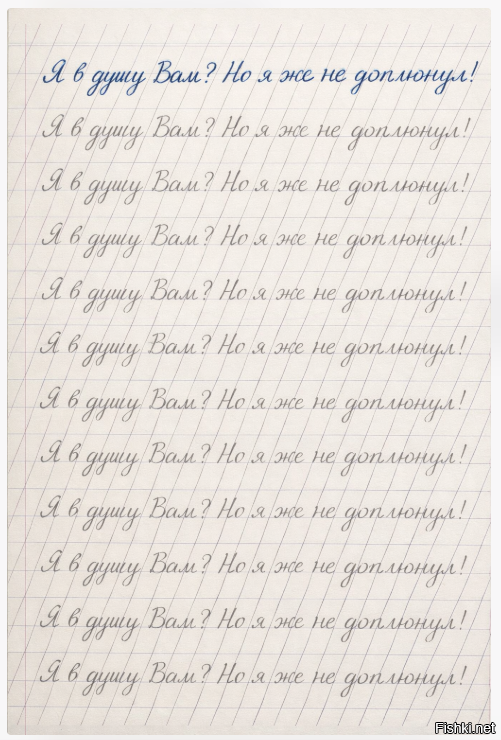 Я в душу Вам? Но я же не доплюнул!
Я в душу Вам? Но я же не доплюнул!
Я в душу Вам? Но я же не доплюнул!
Я в душу Вам? Но я же не доплюнул!
Я в душу Вам? Но я же не доплюнул!
Я в душу Вам? Но я же не доплюнул!
Я в душу Вам? Но я же не доплюнул!
Я в душу Вам? Но я же не доплюнул!
Я в душу Вам? Но я же не доплюнул!
Я в душу Вам? Но я же не доплюнул!
Я в душу Вам? Но я же не доплюнул!
Я в душу Вам? Но я же не доплюнул!
Fishki.net